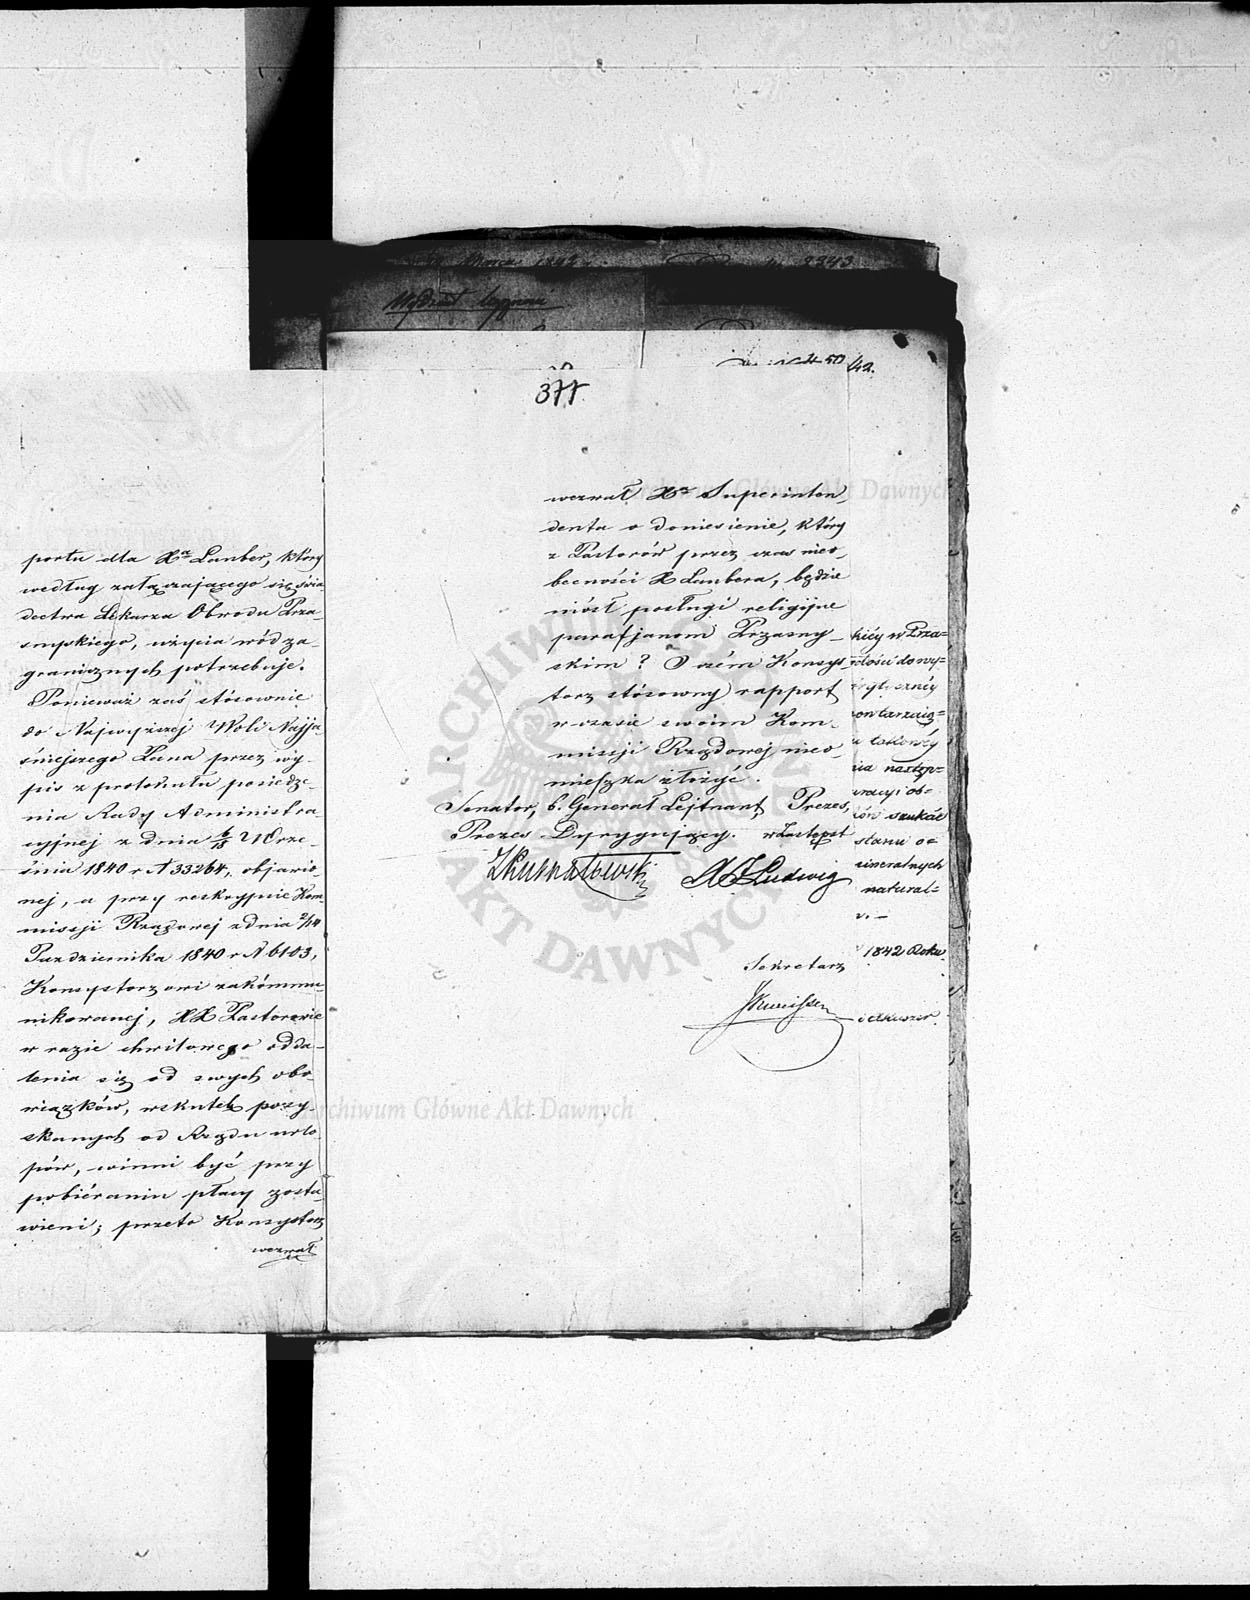 portu dla Xa Lauber, który
według załączającego się świa
dectwa Lékarza Obwodu Prza-
snyskiego, użycia wód za-
granicznych potrzebuje.
Ponieważ zaś stósownie
do Najwyższej Woli Najja
śniejszego Pana przez wy-
pis z protokułu posiedze-
nia Rady Administra-
cyjnej z dnia 6/18 Wrze-
śnia 1840 r N 33264, objawio-
nej, a przy reskrypcie Kom
missji Rządowej z dnia 2/14
Października 1840 r N 6103,
Konsystorzowi zakommu-
nikowanej, XX Pastorowie
w razie chwilowego odda-
lenia się od swych obo-
wiązków, wskutek pozy-
skanych od Rządu urlo-
pów, winni być przy
pobiéraniu płacy zosta-
wieni; przeto Konsystorz
wezwał
Wydział
377.
450/42.
wezwał Xa Superinten-
denta o doniesienie, który
z Pastorów przez czas nieo-
becności X Laubera, będzie
niósł posługi religijne
parafjanom Przasny-
skim? O czém Konsys-
torz stósowny rapport
w czasie swoim Kom-
missji Rządowej nieo-
mieszka złożyć.
Senator, b. Generał Lejtnant, Prezes,
Prezes Dyrygujący. w Zastępst
Ludwig
Sekretarz
kiéy w Prza=
stanu o=
mineralnych
natural=
1842 Roku.
Archiwum Główne Akt Dawnych
Archiwum Główne Akt Dawnych
ARCHIWUM GŁÓWNE AKT DAWNYCH